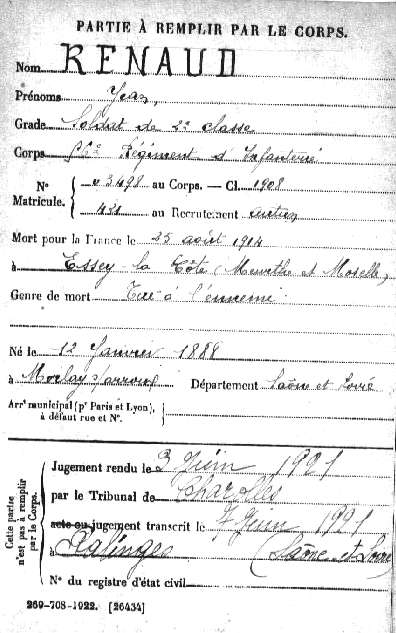 PARTIE À REMPLIR PAR LE CORPS.
Nom RENAUD
Prénoms Jean
Grade Soldat de 2e classe
Corps Régiment d'Infanterie
N° Matricule.
n° 3498 au Corps. — Cl. 1908
421 au Recrutement Autun
Mort pour la France le 25 août 1914
à Essey la Côte (Meurthe et Moselle)
Genre de mort Tué à l'ennemi
Né le 12 Janvier 1888
à Département Saône et Loire
Arrt municipal (pr Paris et Lyon), à défaut rue et N°.
Cette partie n'est pas à remplir par le Corps.
Jugement rendu le 3 Juin 1921
par le Tribunal de Charolles
acte ou jugement transcrit le 7 Juin 1921
à Palinges (Saône et Loire
N° du registre d'état civil
269-708-1922. [26434]